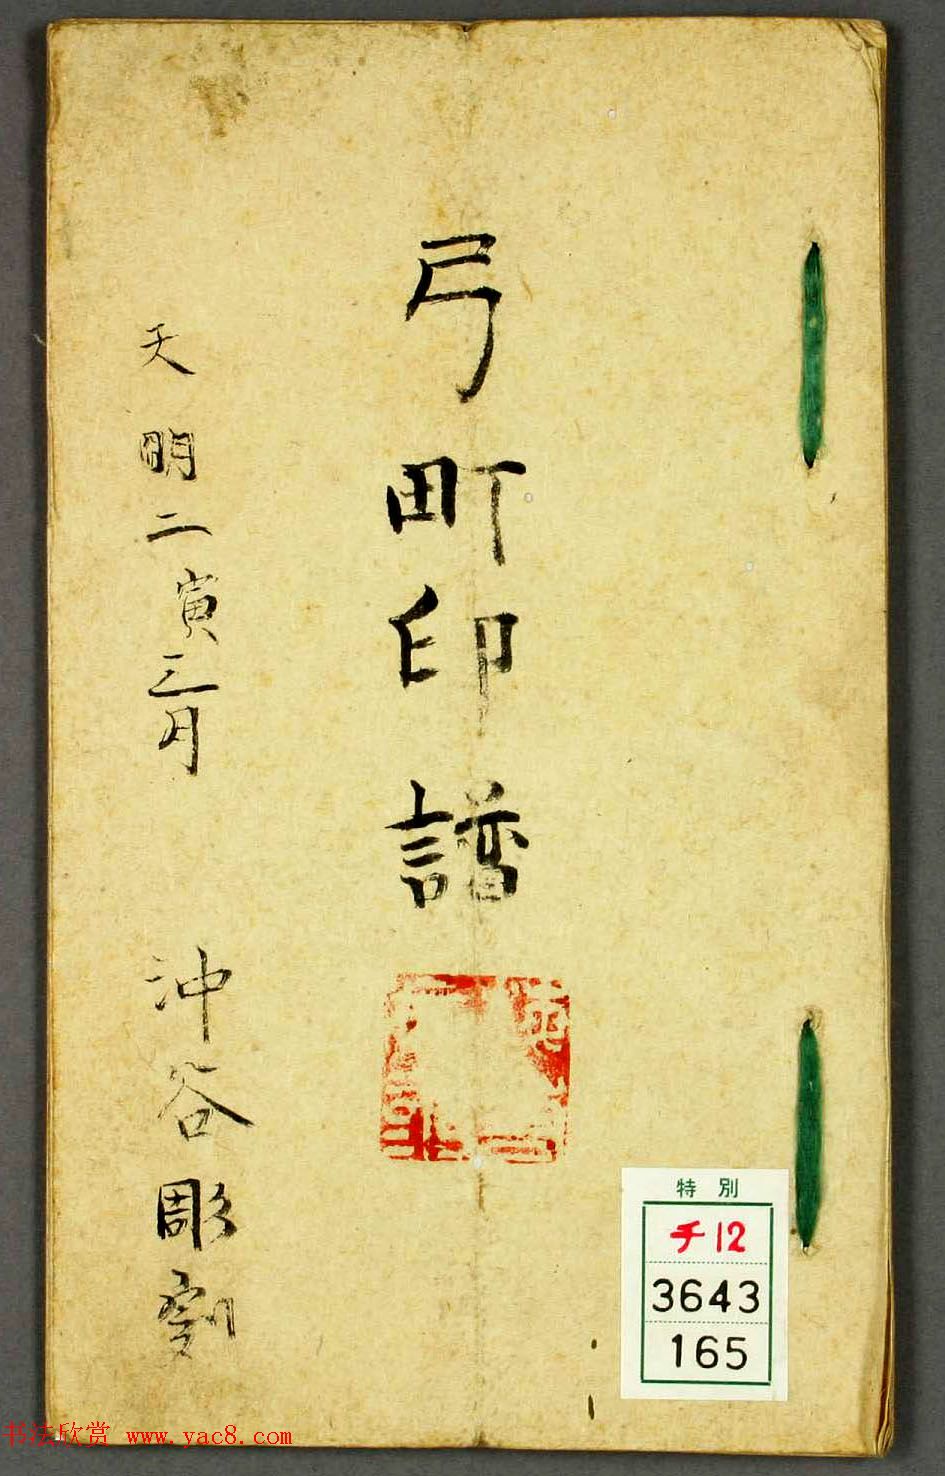 弓町印譜
天明二寅三月
沖谷彫刻
特別
チ12
3643
165
书法欣赏 www.yac8.com